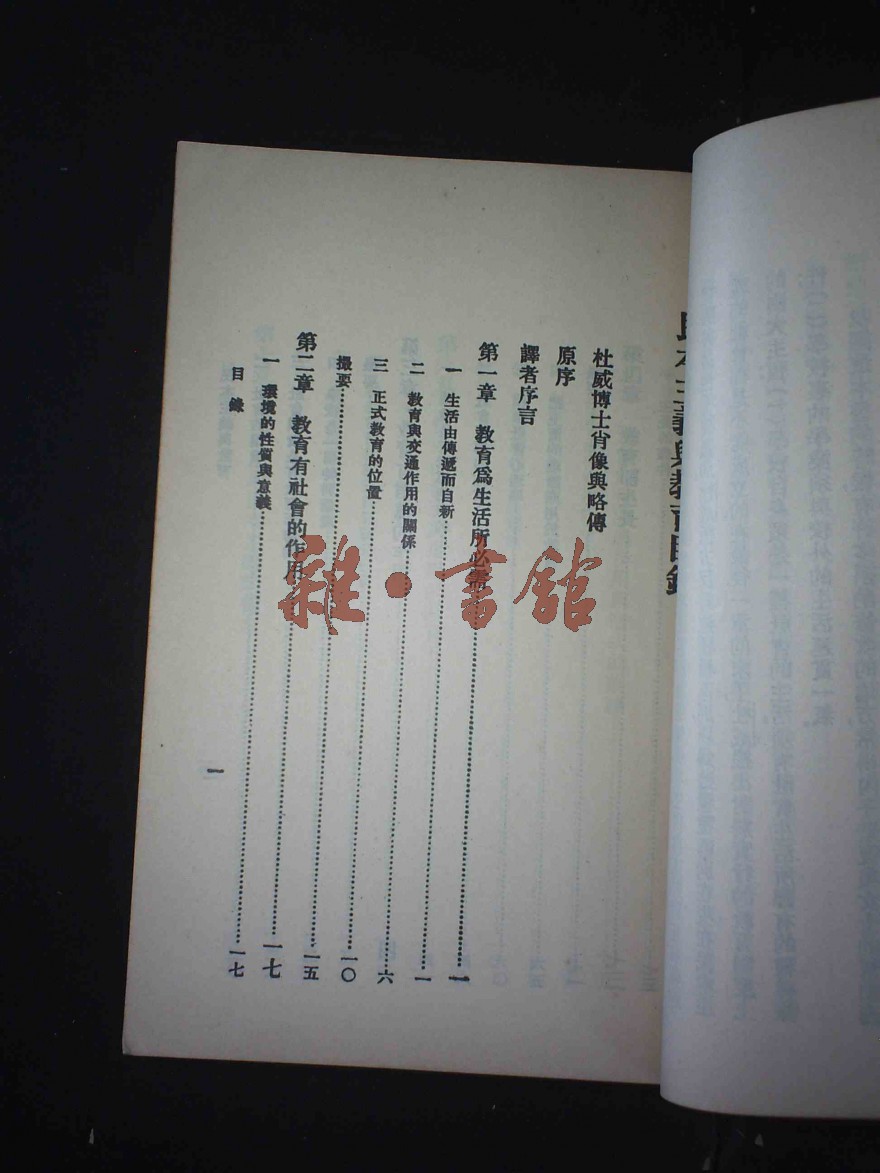 民本主義與教育目錄
杜威博士肖像與略傳
原序
譯者序言
第一章 教育爲生活所必需……一
一 生活由傳遞而自新……一
二 教育與交通作用的關係……六
三 正式教育的位置……一〇
撮要……一五
第二章 教育有社會的作用……一七
一 環境的性質與意義……一七
目錄 一
雜·書館